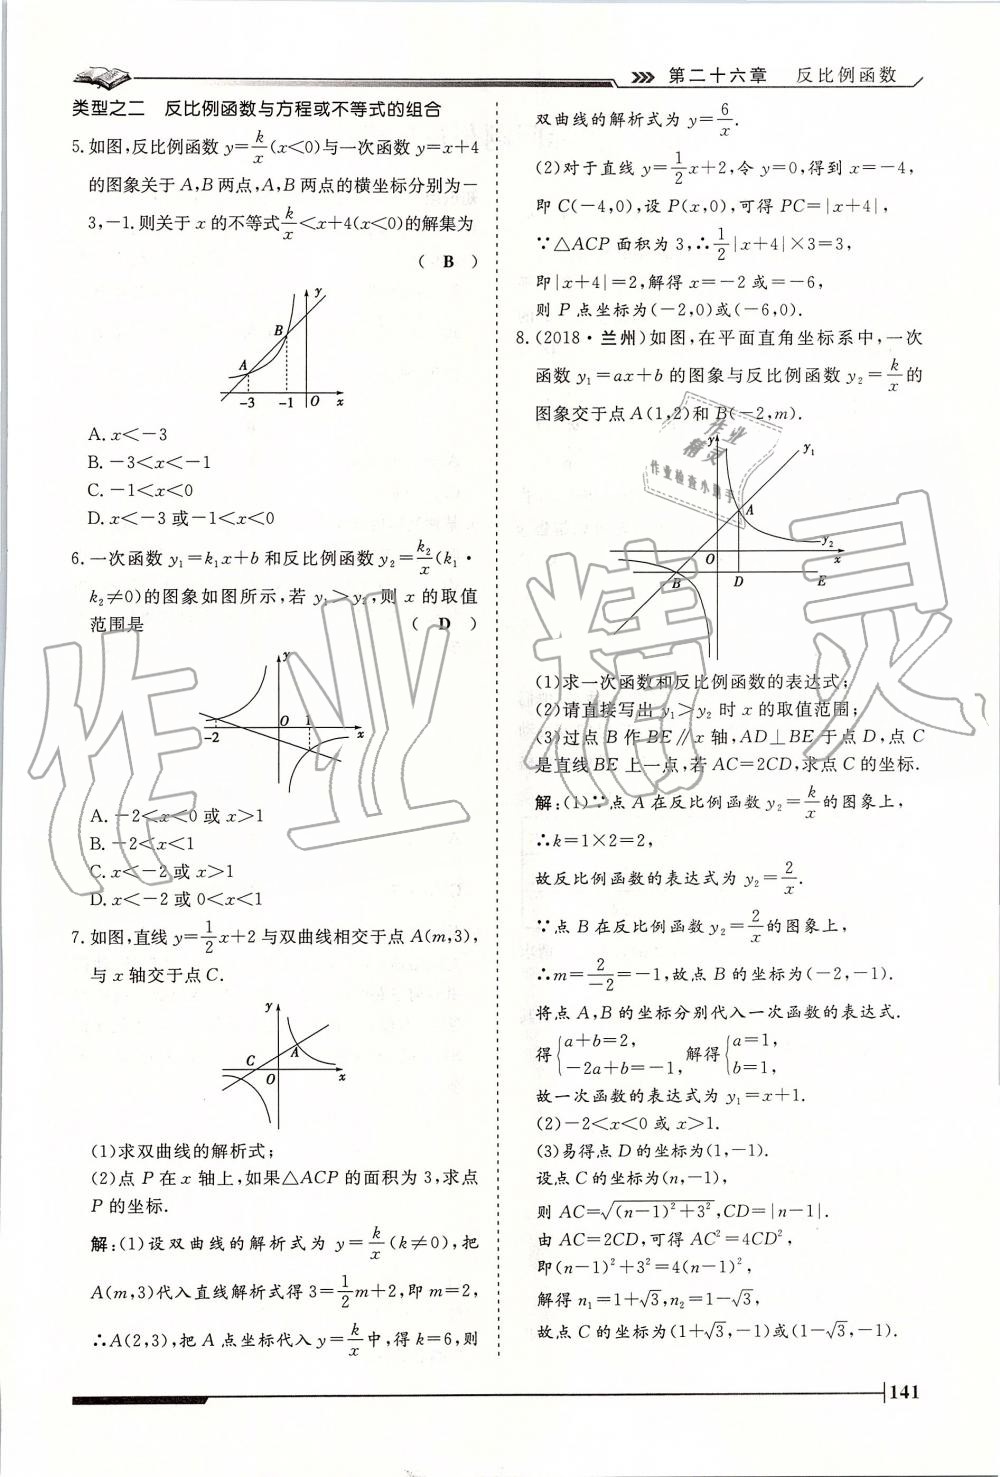 第二十六章 反比例函数
类型之二 反比例函数与方程或不等式的组合
5. 如图,反比例函数 y=k/x(x<0)与一次函数 y=x+4
的图象关于 A,B 两点,A,B 两点的横坐标分别为-
3,-1.则关于 x 的不等式k/x<x+4(x<0)的解集为
( B )
y
B
A
-3 -1 O x
A. x<-3
B. -3<x<-1
C. -1<x<0
D. x<-3 或-1<x<0
6. 一次函数 y₁=k₁x+b 和反比例函数 y₂=k₂/x(k₁·
k₂≠0)的图象如图所示,若 y₁>y₂,则 x 的取值
范围是 ( D )
y
-2 O 1 x
A. -2<x<0 或 x>1
B. -2<x<1
C. x<-2 或 x>1
D. x<-2 或 0<x<1
7. 如图,直线 y=1/2x+2 与双曲线相交于点 A(m,3),
与 x 轴交于点 C.
y
C A
O x
(1)求双曲线的解析式;
(2)点 P 在 x 轴上,如果△ACP 的面积为 3,求点
P 的坐标.
解:(1)设双曲线的解析式为 y=k/x(k≠0),把
A(m,3)代入直线解析式得 3=1/2m+2,即 m=2,
∴A(2,3),把 A 点坐标代入 y=k/x中,得 k=6,则
双曲线的解析式为 y=6/x.
(2)对于直线 y=1/2x+2,令 y=0,得到 x=-4,
即 C(-4,0),设 P(x,0),可得 PC=|x+4|,
∵△ACP 面积为 3,∴1/2|x+4|×3=3,
即|x+4|=2,解得 x=-2 或=-6,
则 P 点坐标为(-2,0)或(-6,0).
8. (2018·兰州)如图,在平面直角坐标系中,一次
函数 y₁=ax+b 的图象与反比例函数 y₂=k/x的
图象交于点 A(1,2)和 B(-2,m).
作业
精灵
作业检查小助手
y y₁
A
y₂
O x
B D E
(1)求一次函数和反比例函数的表达式;
(2)请直接写出 y₁>y₂ 时 x 的取值范围;
(3)过点 B 作 BE∥x 轴,AD⊥BE 于点 D,点 C
是直线 BE 上一点,若 AC=2CD,求点 C 的坐标.
解:(1)∵点 A 在反比例函数 y₂=k/x的图象上,
∴k=1×2=2,
故反比例函数的表达式为 y₂=2/x.
∵点 B 在反比例函数 y₂=2/x的图象上,
∴m=2/-2=-1,故点 B 的坐标为(-2,-1).
将点 A,B 的坐标分别代入一次函数的表达式.
得{a+b=2, -2a+b=-1, 解得{a=1, b=1,
故一次函数的表达式为 y₁=x+1.
(2)-2<x<0 或 x>1.
(3)易得点 D 的坐标为(1,-1).
设点 C 的坐标为(n,-1),
则 AC=√(n-1)²+3²,CD=|n-1|.
由 AC=2CD,可得 AC²=4CD²,
即(n-1)²+3²=4(n-1)²,
解得 n₁=1+√3,n₂=1-√3,
故点 C 的坐标为(1+√3,-1)或(1-√3,-1).
141
作业精灵